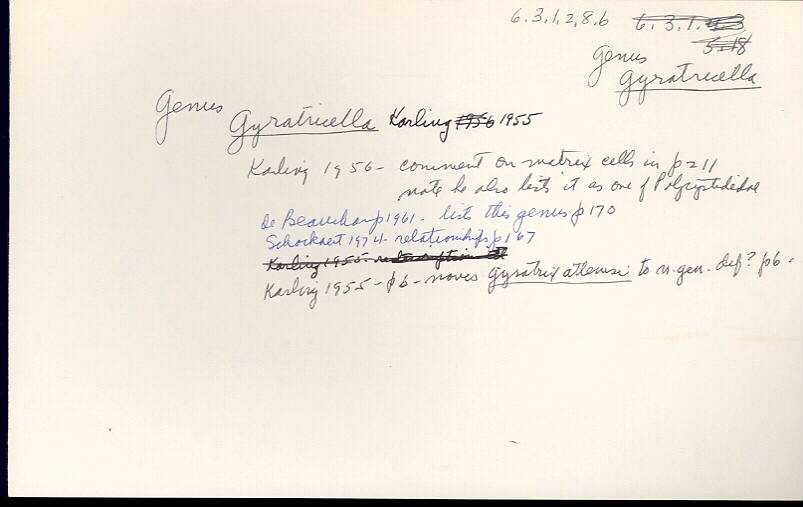 6.3.1,2,8.6 6.3.1.4.3
5-18
Genus
Gyratricella
Genus
Gyratricella Karling 1956 1955
Karling 1956 - comment on matrix cells in p 211
note he also lists it as one of Polycystididae
de Beauchamp 1961 - lists this genus p 170
Schockaert 1974 - relationships p 167
Karling 1955 - redescription
Karling 1955 - p 6 - moves gyratrix attemsi to n. gen. def? p 6.